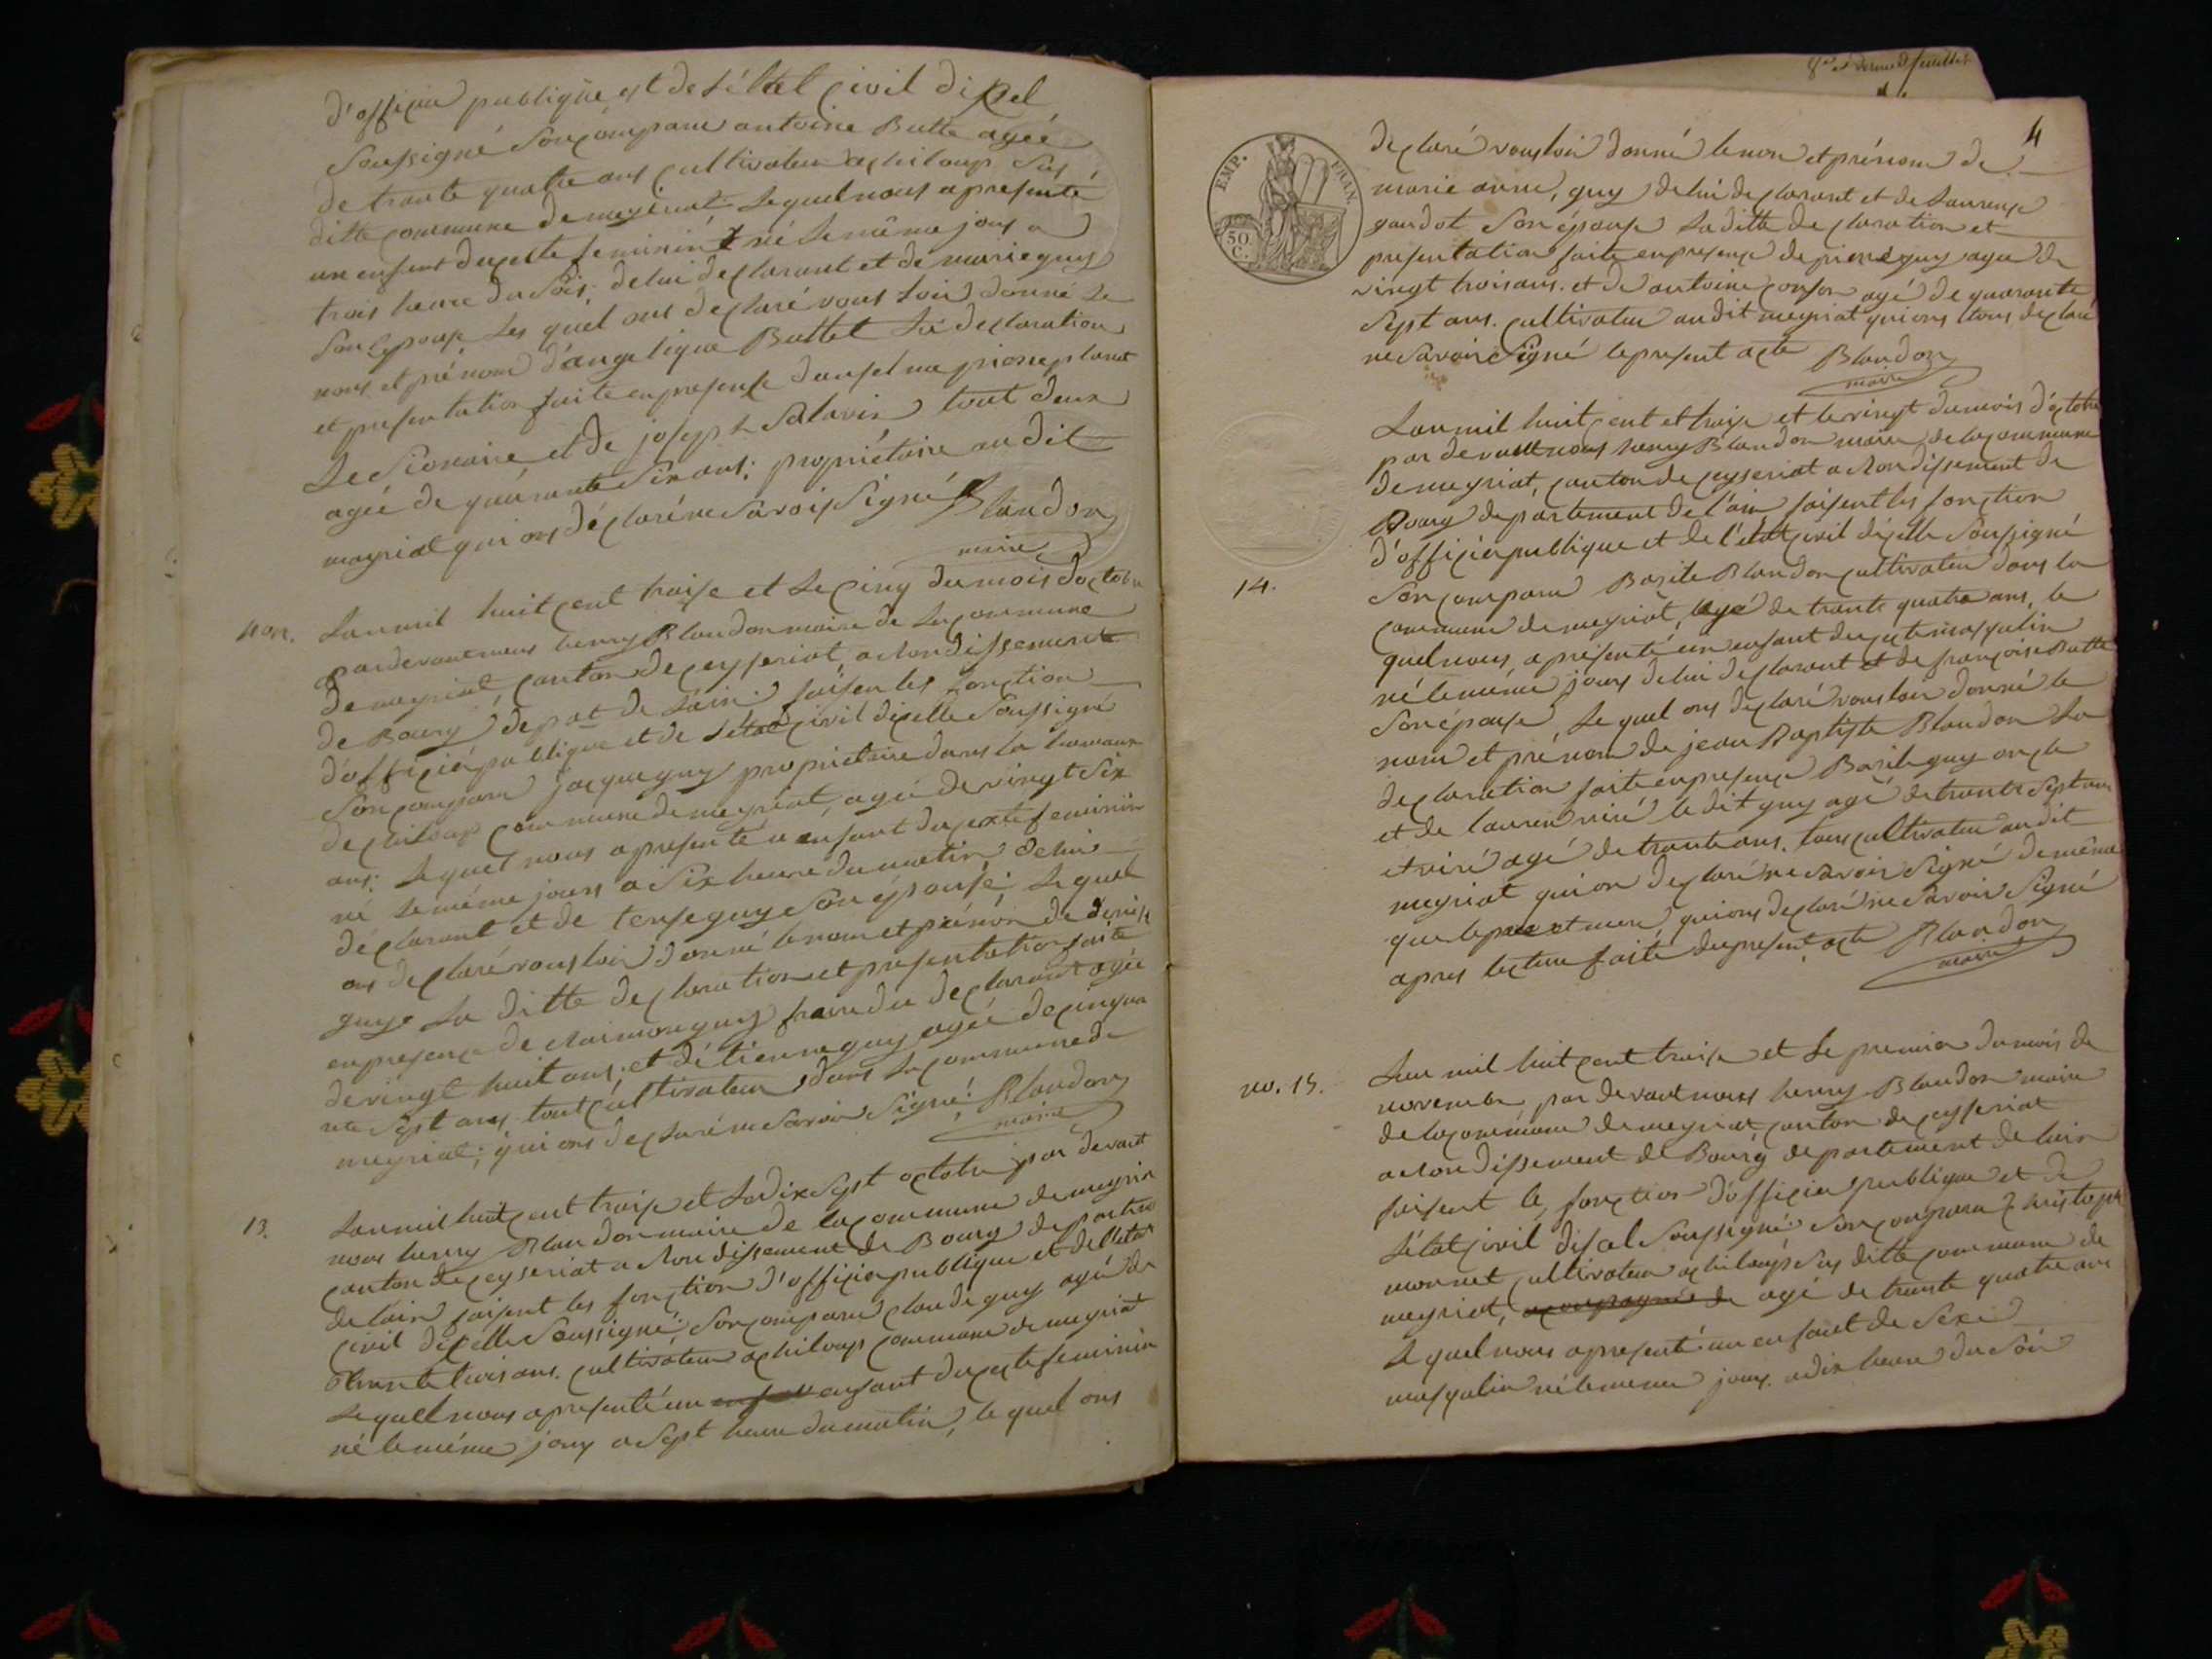 d'officier publique et de l'état civil dicel
soussigné son comparu antoine Butte agée
de trante quatre ans cultivateur a chiloup sus
ditte commune de meyriat. Lequel nous a presenté
un enfant du cexte feminin né le même jour a
trois heure du soir. de lui declarant et de marie guy
son epouse les quel ons declaré vous loir donné le
nom et prénom d'angelique Buttet La declaration
et presentation faite en presence d'anselme pierre planet
Le Sionaire et de joseph Salavin tout deux
agée de quarante six ans; propriétaire au dit
meyriat qui ons déclaré ne savoir signé Blandon
maire
Lan mil huit cent traise et le cinq du mois doctobre
par devant nous henry Blandon maire de la commune
de meyriat canton de ceyseriat, arrondissement
de Bourg depat de Lain: faisen les fonction
d'officier publique et de l'état civil dicelle soussigné
son comparu jacque guy propriétaire dans la
de chiloup commune de meyriat, agée de vingt six
ans: Lequel nous a presenté u enfant du cexte feminin
né le même jours a six heure du matin de lui
déclarant et de guy son épouse: Lequel
ons declaré vous loir donné le nom et prénom de denise
guy La ditte declaration et presentation faite
en presence de guy frere du declarant agée
de vingt huit ans, et d'étienne guy agée de cinqua
nte sept ans tout cultivateur dans la commune de
meyriat; qui ons declaré ne savoir signé: Blandon
maire
13. Lan mil huit cent traise et le dix sept octobre par devant
nous henry Blandon maire de la commune de meyria
canton de ceyseriat arrondissement de Bourg departem
de lain faisent les fonction d'officier publique et de l'etat
civil dicelle soussigné; son comparu claude guy agé de
trante trois ans. cultivateur a chiloup commune de meyriat
Lequell nous a presenté un enfant du cexte feminin
né le même jour a sept heure du matin, le quel ons
4
declaré vous loir donné le nom et prénom de
marie anne, guy de lui declarant et de Laurence
gaudot son épouse La ditte declaration et
presentation faite en presence de pierre guy agée de
vingt trois ans. et de antoine agé de quarante
sept ans. cultivateur au dit meyriat qui ons tous declaré
ne savoir signé le present acte Blandon
maire
EMP. FRAN.
50 C.
Lan mil huit cent et traise et le vingt du mois d'octobre
par devant nous henry Blandon maire de la commune
de meyriat, canton de ceyseriat arrondissement de
Bourg departement de l'ain faisent les fonction
d'officier publique et de l'état civil dicelle soussigné
14. son comparu Basile Blandon cultivateur dans la
commune de meyriat, agé de trante quatre ans, le
quel nous a présenté un enfant du cexte masqulin
né le même jours de lui declarant et de françoise Butte
son épouse, Le quel ons declaré vous loir donné le
nom et prénom de jean Baptiste Blandon La
declaration faite en presence Basile guy oncle
et de lauren viré le dit guy agé de trante sept ans
et viré agé de trante ans, tous cultivateur au dit
meyriat qui on declaré ne savoir signé de même
que le pere et mere, qui ons declaré ne savoir signé
apres lecture faite du present acte Blandon
maire
no. 15. Lan mil huit cent traise et le premier du mois de
novembre par devant nous henry Blandon maire
de la commune de meyriat canton de ceyseriat
arrondissement de Bourg departement de lain
faisent les fonction d'officier publique et de
l'état civil dicel soussigné: son comparu christophe
monnet cultivateur a chiloup sus ditte commune de
meyriat, agé de trante quatre ans
Le quel nous a presenté un enfant de sexe
masqulin né le meme jours a dix heure du soir